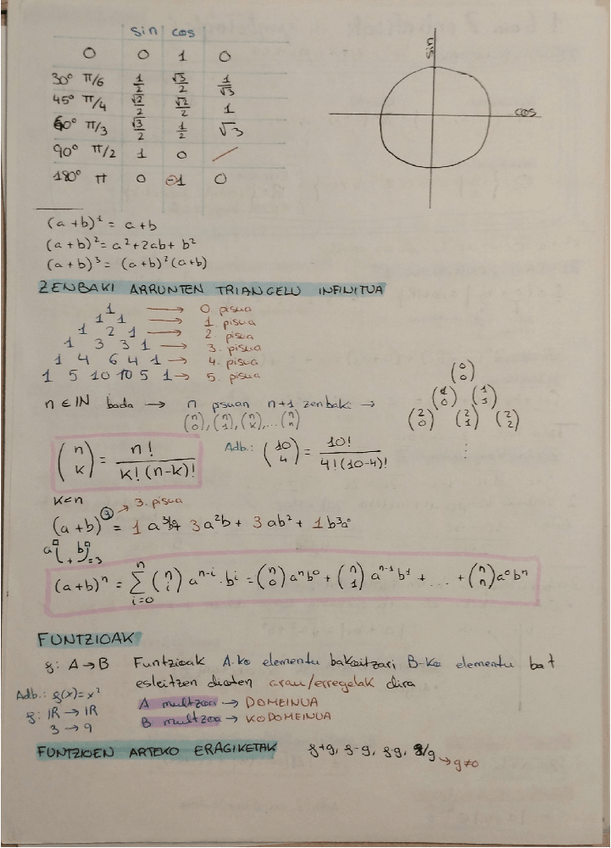 sin cos
0 0 1 0
30º π/6 1/2 √3/2 1/√3
45º π/4 √2/2 √2/2 1
60º π/3 √3/2 1/2 √3
90º π/2 1 0 /
180º π 0 -1 0
sin
cos
(a+b)¹ = a+b
(a+b)² = a²+2ab+b²
(a+b)³ = (a+b)²(a+b)
ZENBAKI ARRUNTEN TRIANGELU INFINITUA
1 → 0. pisua
1 1 → 1. pisua
1 2 1 → 2. pisua
1 3 3 1 → 3. pisua
1 4 6 4 1 → 4. pisua
1 5 10 10 5 1 → 5. pisua
n ∈ IN bada → n pisuan n+1 zenbaki →
(n 0), (n 1), (n k), ... (n n)
(0 0)
(1 0) (1 1)
(2 0) (2 1) (2 2)
(n k) = n! / k!(n-k)!
Adb.: (10 4) = 10! / 4!(10-4)!
k<n
→ 3. pisua
(a+b)³ = 1 a³b⁰ + 3a²b + 3ab² + 1b³a⁰
a b + = 3
(a+b)ⁿ = Σ i=0 n (n i) aⁿ⁻ⁱ · bⁱ = (n 0) aⁿb⁰ + (n 1) aⁿ⁻¹ b¹ + ... + (n n) a⁰bⁿ
FUNTZIOAK
f: A → B Funtzioak A-ko elementu bakoitzari B-ko elementu bat
esleitzen dioten arau/erregelak dira
Adb.: f(x) = x²
f: IR → IR
3 → 9
A multzoa → DOMEINUA
B multzoa → KODOMEINUA
FUNTZIOEN ARTEKO ERAGIKETAK f+g, f-g, fg, f/g → g≠0